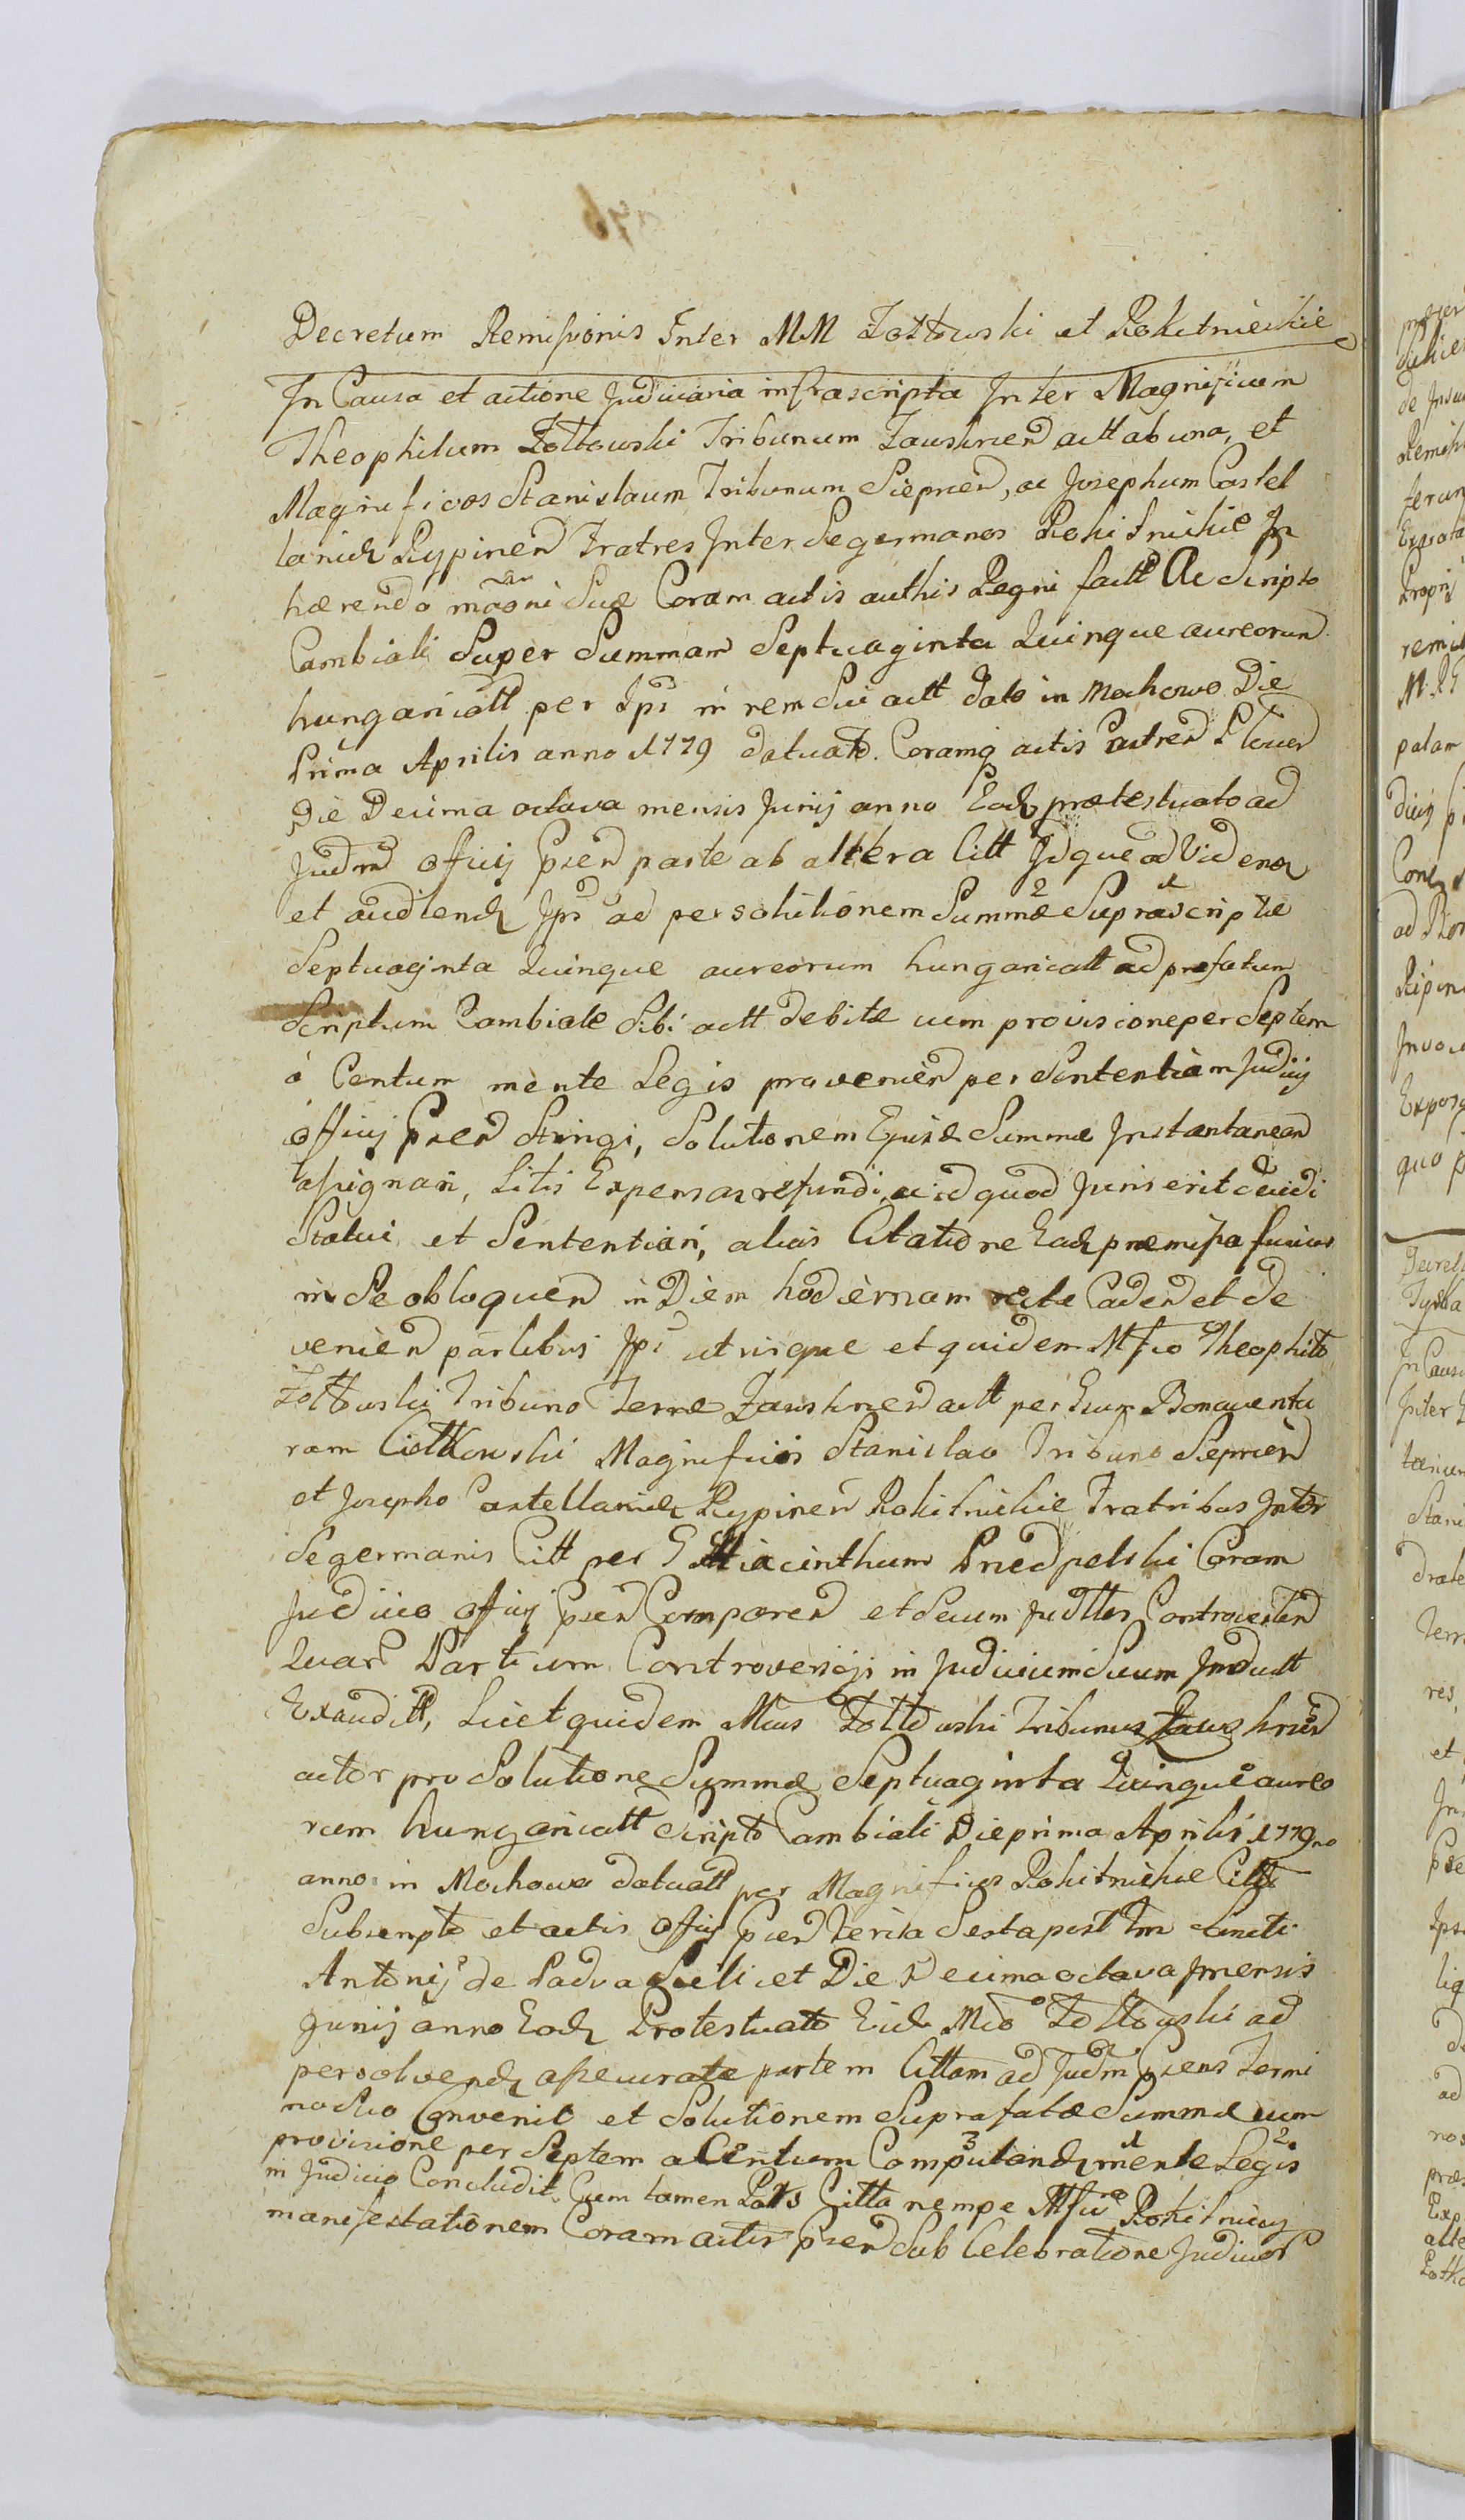 Decretum Remissionis Inter MM Zołtowski et Rokitnickie
In Causa et actione Judiciaria infrascripta Inter Magnificum
Theophilum Zołtowski Tribunum Zawskrzen actt ab una, et
Magnificos Stanislaum Tribunum Sieprcen, ac Josephum Castel
lanid Rypinen Fratres Inter Segermanos Rokitnickie In
hærendo maoni Suæ Coram actis authis Regni factt Ac Scripto
Cambiali Super Summam Septuaginta Quinque aureorum
hungaricatt per Ips in rem Sui actt dato in Mochowo Die
Prima Aprilis anno 1779 datuato. Coramq actis Castren Plocen
Die Decima octava mensis Junij anno Eod protestuato ad
Judm officij Pzen parte ab altera Citt Idque ad Videnđ
et audiend Ips ad persolutionem Summæ 2 Supra 1 scriptæ
Septuaginta Quinque aureorum hungaricatt ad præfatum
Scriptum Cambiale Sibi actt debitæ cum provisione per Septem
à Centum mente Legis provenien per Sententiam Judicij
officij Pzen Stringi, Solutionem Ejusd Summæ Instantanean
assignari, Litis Expensas refundi, ac id quod Juris erit decidi
Statui et Sententiari, alias Citatione Ead præmissa fusius
in Se obloquen in Diem hodiernam rite Caden et de
venien partibus Ips utrisque et quidem Mfco Theophilo
Zołtowski Tribuno Terræ Zawskrzen actt per Grum Bonaventu
ram Ciołkowski Magnificis Stanislao Tribuno Sieprcen
et Josepho Castellanid Rypinen Rokitnickie Fratribus Inter
Segermanis Citt per G Hiacinthum Przedpelski Coram
Judicio officij Pzen Comparen et Secum Judttr Controverten
Quar Partium Controversijs in Judicium Suum Induct
Exauditt, Licet quidem Mcus Zołtowski Tribunus Zawskrzen
actor pro Solutione Summæ Septuaginta Quinque aureo
rum hungaricatt Scripto Cambiali Die prima Aprilis 1779no
anno in Mochowo datuatt per Magnificos Rokitnickie Citt
Subscripto et actis officij Pzen Feria Sexta post Fm Sancti
Antonij de Padua Scilicet Die Decima octava mensis
Junij anno Eod Protestuato Eid Mco Zołtowski ad
persolvend assecuratæ partem Cittam ad Judm Pzens Termi
no Suo Convenit et Solutionem Suprafatæ Summæ cum
provisione per Septem a Centum Computand 3 mente 1 Legis 2
in Judicio Concludit. Cum tamen Pars Citta nempe Mfci Rokitniccy
manifestationem Coram actis Pzen Sub Celebratione Judicior